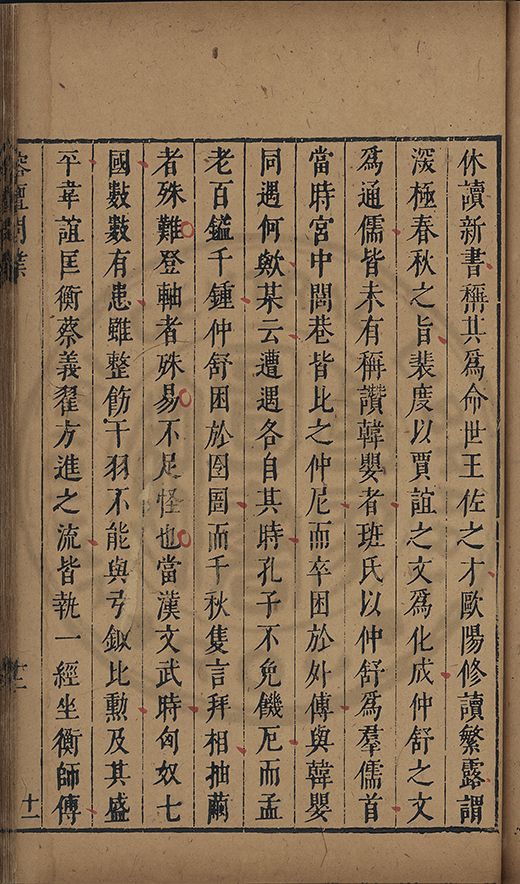 休讀新書稱其爲命世王佐之才歐陽修讀繁露謂
深極春秋之旨裴度以賈誼之文爲化成仲舒之文
爲通儒皆未有稱讚韓嬰者班氏以仲舒爲羣儒首
當時宮中閭巷皆比之仲尼而卒困於外傅與韓嬰
同遇何歟某云遭遇各自其時孔子不免饑戹而孟
老百鎰千鍾仲舒困於囹圄而千秋隻言拜相抽繭
者殊難登軸者殊易不足怪也當漢文武時匈奴七
國數數有患雖整飭干羽不能與弓鈹比勳及其盛
平韋誼匡衡蔡義翟方進之流皆執一經坐衡師傅
榕壇問業
十一